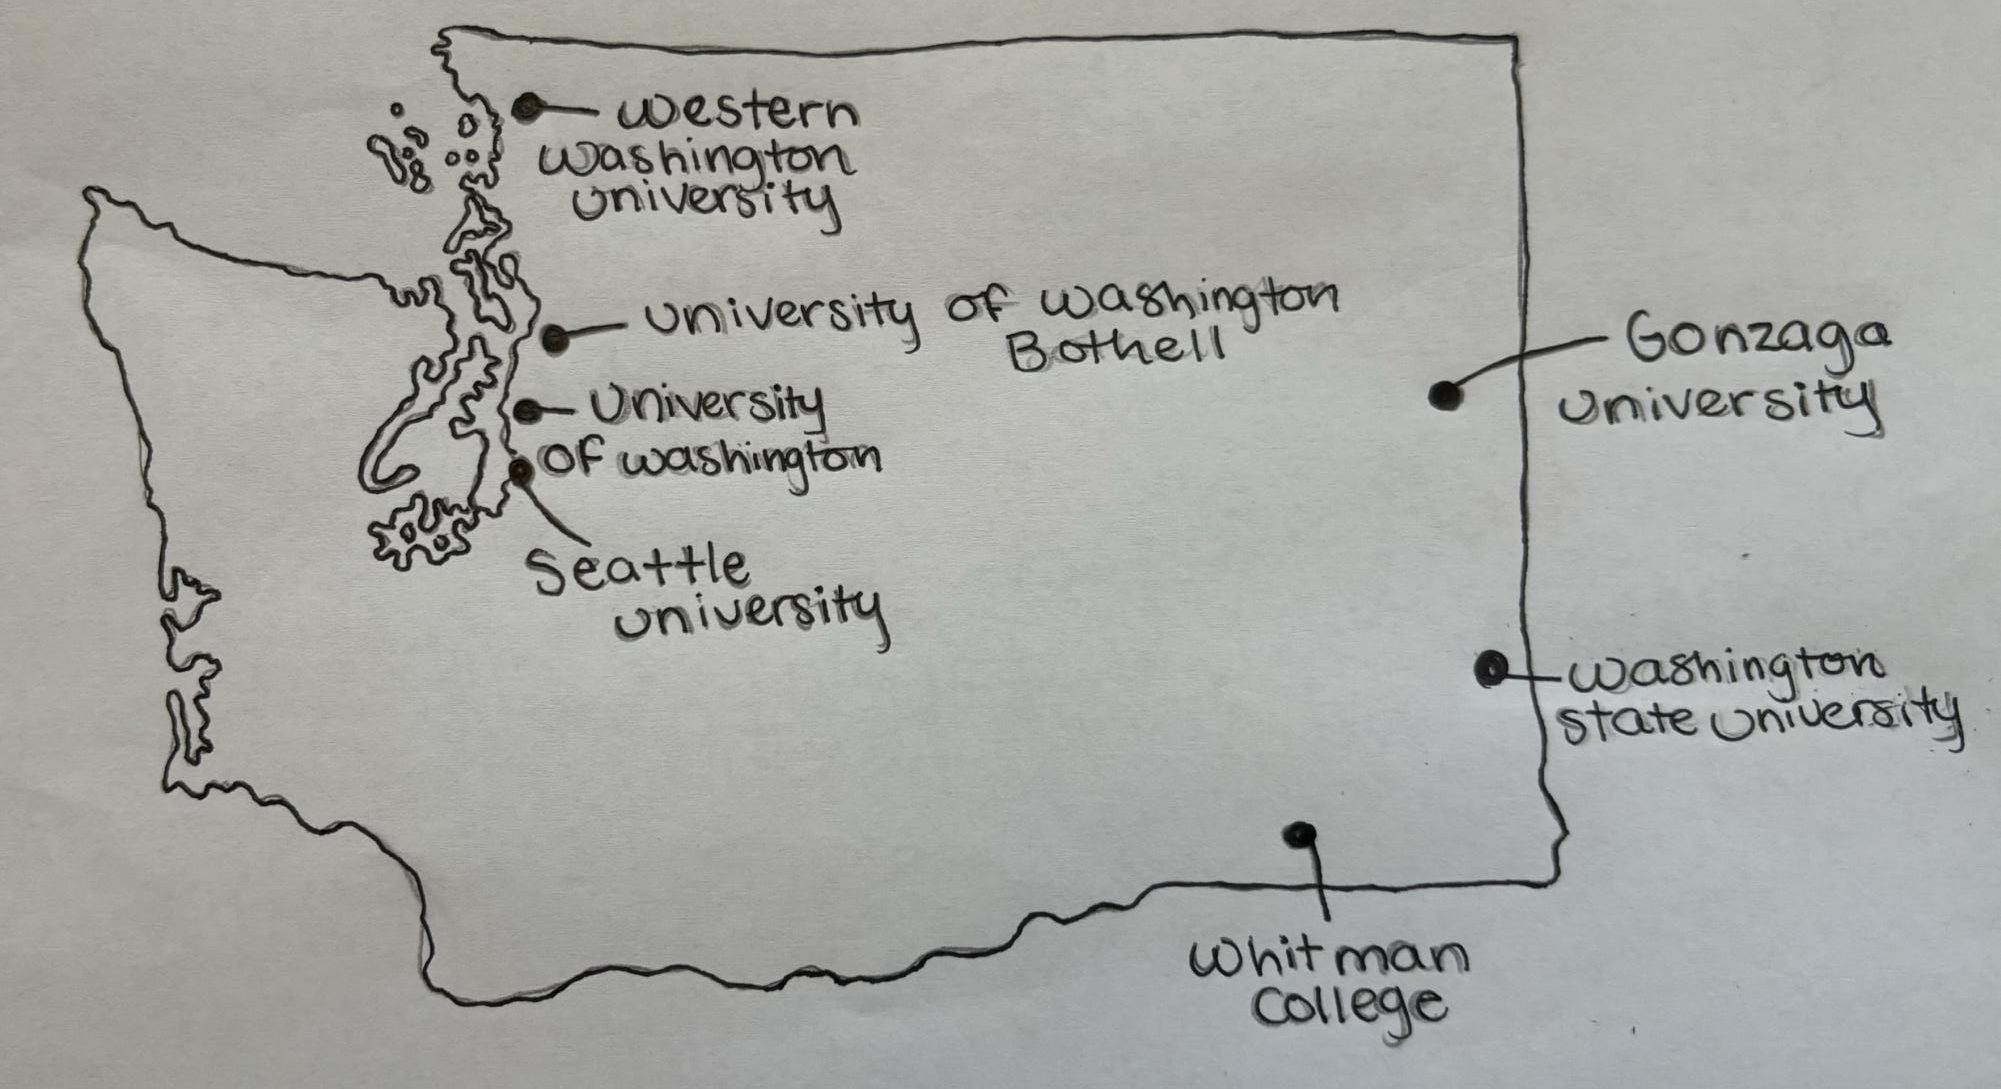 western
washington
university
university of washington
Bothell
University
of washington
Seattle
university
Gonzaga
university
washington
state university
whitman
college